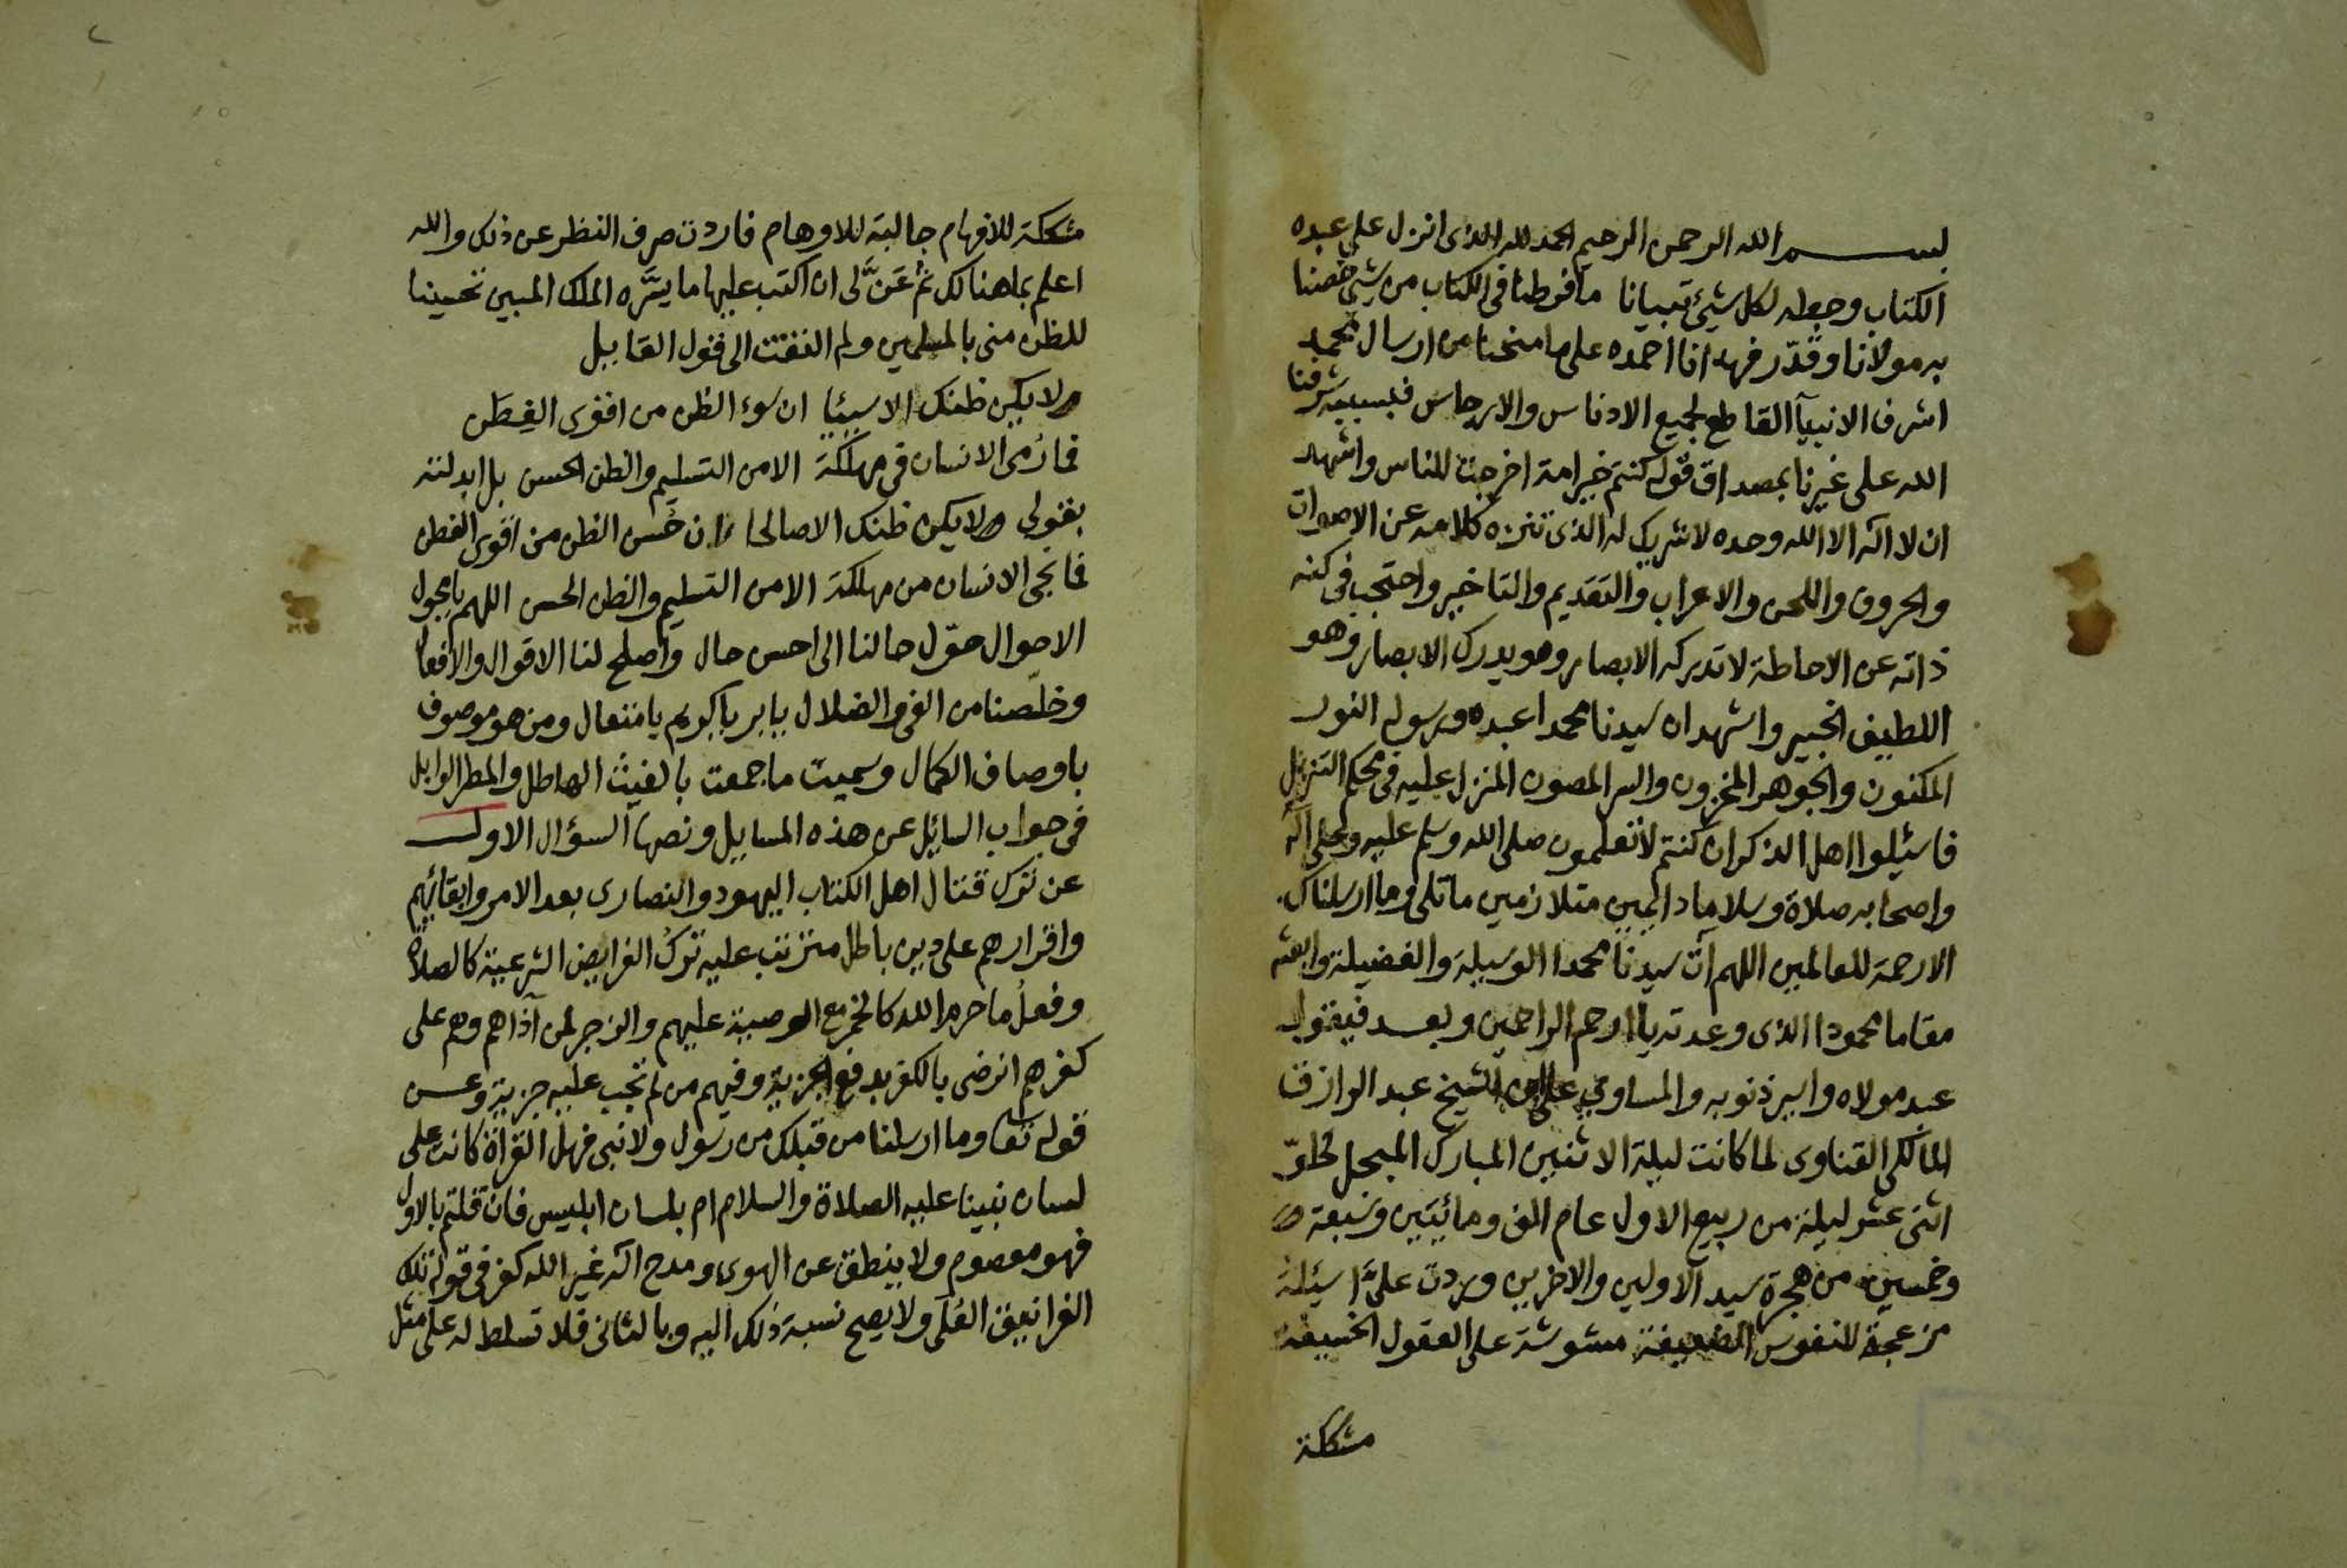 بسم الله الرحمن الرحيم الحمد لله الذى انزل على عبده
الكتاب وجعله لكل شيئ تبيانا ما فرطنا فى الكتاب من شيئ خصنا
به مولانا وقدّر فهدانا احمده على ما منحنا من ارسال محمد
اشرف الانبيآ القاطع لجميع الادناس والارجاس فبسببه شرفنا
الله على غيرنا بمصداق قوله كنتم خير امة اخرجت للناس واشهد
ان لا اله الا الله وحده لا شريك له الذى تنزه كلامه عن الاصوات
والحروف واللحن والاعراب والتقديم والتاخير واحتجب فى كنه
ذاته عن الاحاطة لا تدركه الابصار وهو يدرك الابصار وهو
اللطيف الخبير واشهد ان سيدنا محمدا عبده ورسوله النور
المكنون والجوهر المخزون والسر المصون المنزل عليه فى محكم التنزيل
فاسئيلوا اهل الذكر ان كنتم لا تعلمون صلى الله وسلم عليه وعلى اله
واصحابه صلاة وسلاما دائمين متلازمين ما تلى وما ارسلناك
الا رحمة للعالمين اللهم آت سيدنا محمدا الوسيلة والفضيلة وابعثه
مقاما محمودا الذى وعدته يا ارحم الراحمين وبعد فيقول
عبد مولاه واسير ذنوبه والمساوي على ابن الشيخ عبد الرازق
المالكى القناوى لما كانت ليلة الاثنين المبارك المبجل لخلوّ
اثنى عشر ليلة من ربيع الاول عام الف ومائيتين وسبعة
وخمسين من هجرة سيد الاولين والاخرين وردت علىَّ اسيئلة
مزعجة للنفوس الضعيفة مشوشة على العقول الخسيفة
مشكلة
مشكلة للافهام جالبة للاوهام فاردت صرف النظر عن ذلك والله
اعلم بما هنالك ثم عَنَّ لى ان اكتب عليها ما يسَّره الملك المبين تحسينا
للظن منى بالمسلمين ولم التفت الى قول القاييل
ولا يكن ظنك الا سيئا ان سوء الظن من اقوى الفِطَن
ما رُمى الانسان فى مهلكة الا من التسليم والظن الحسن بل ابدلته
بقولى ولا يكن ظنك الا صالحا ان حُسن الظن من اقوى الفطن
ما نجى الانسان من مهلكة الا من التسليم والظن الحسن اللهم يا محول
الاحوال حوّل حالنا الى احسن حال واصلح لنا الاقوال والافعال
وخلّصنا من الغى والضلال يا بر يا كريم يا متعال ومن هو موصوف
باوصاف الكمال وسميت ما جمعت بالغيث الهاطل والمطر الوابل
فى جواب السائيل عن هذه المسايل ونصها السؤال الاول
عن ترك قتال اهل الكتاب اليهود والنصارى بعد الامر وابقائهم
واقرارهم على دين باطل مترتب عليه تركُ الفرايض الشرعية كالصلاة
وفعلُ ما حرم الله كالخمر مع الوصية عليهم والزجر لمن آذاهم وهم على
كفرهم انرضى بالكفر بدفع الجزية وفيهم من لم تجب عليه جزية وعن
قوله تعا وما ارسلنا من قبلك من رسول ولا نبى فهل القراة كانت على
لسان نبينا عليه الصلاة والسلام ام بلسان ابليس فان قلتم بالاول
فهو معصوم ولا ينطق عن الهوى ومدح اله غير الله كفر فى قوله تلك
الغرانيق العُلَى ولا يصح نسبة ذلك اليه وبالثانى فلا تسلط له على مثل